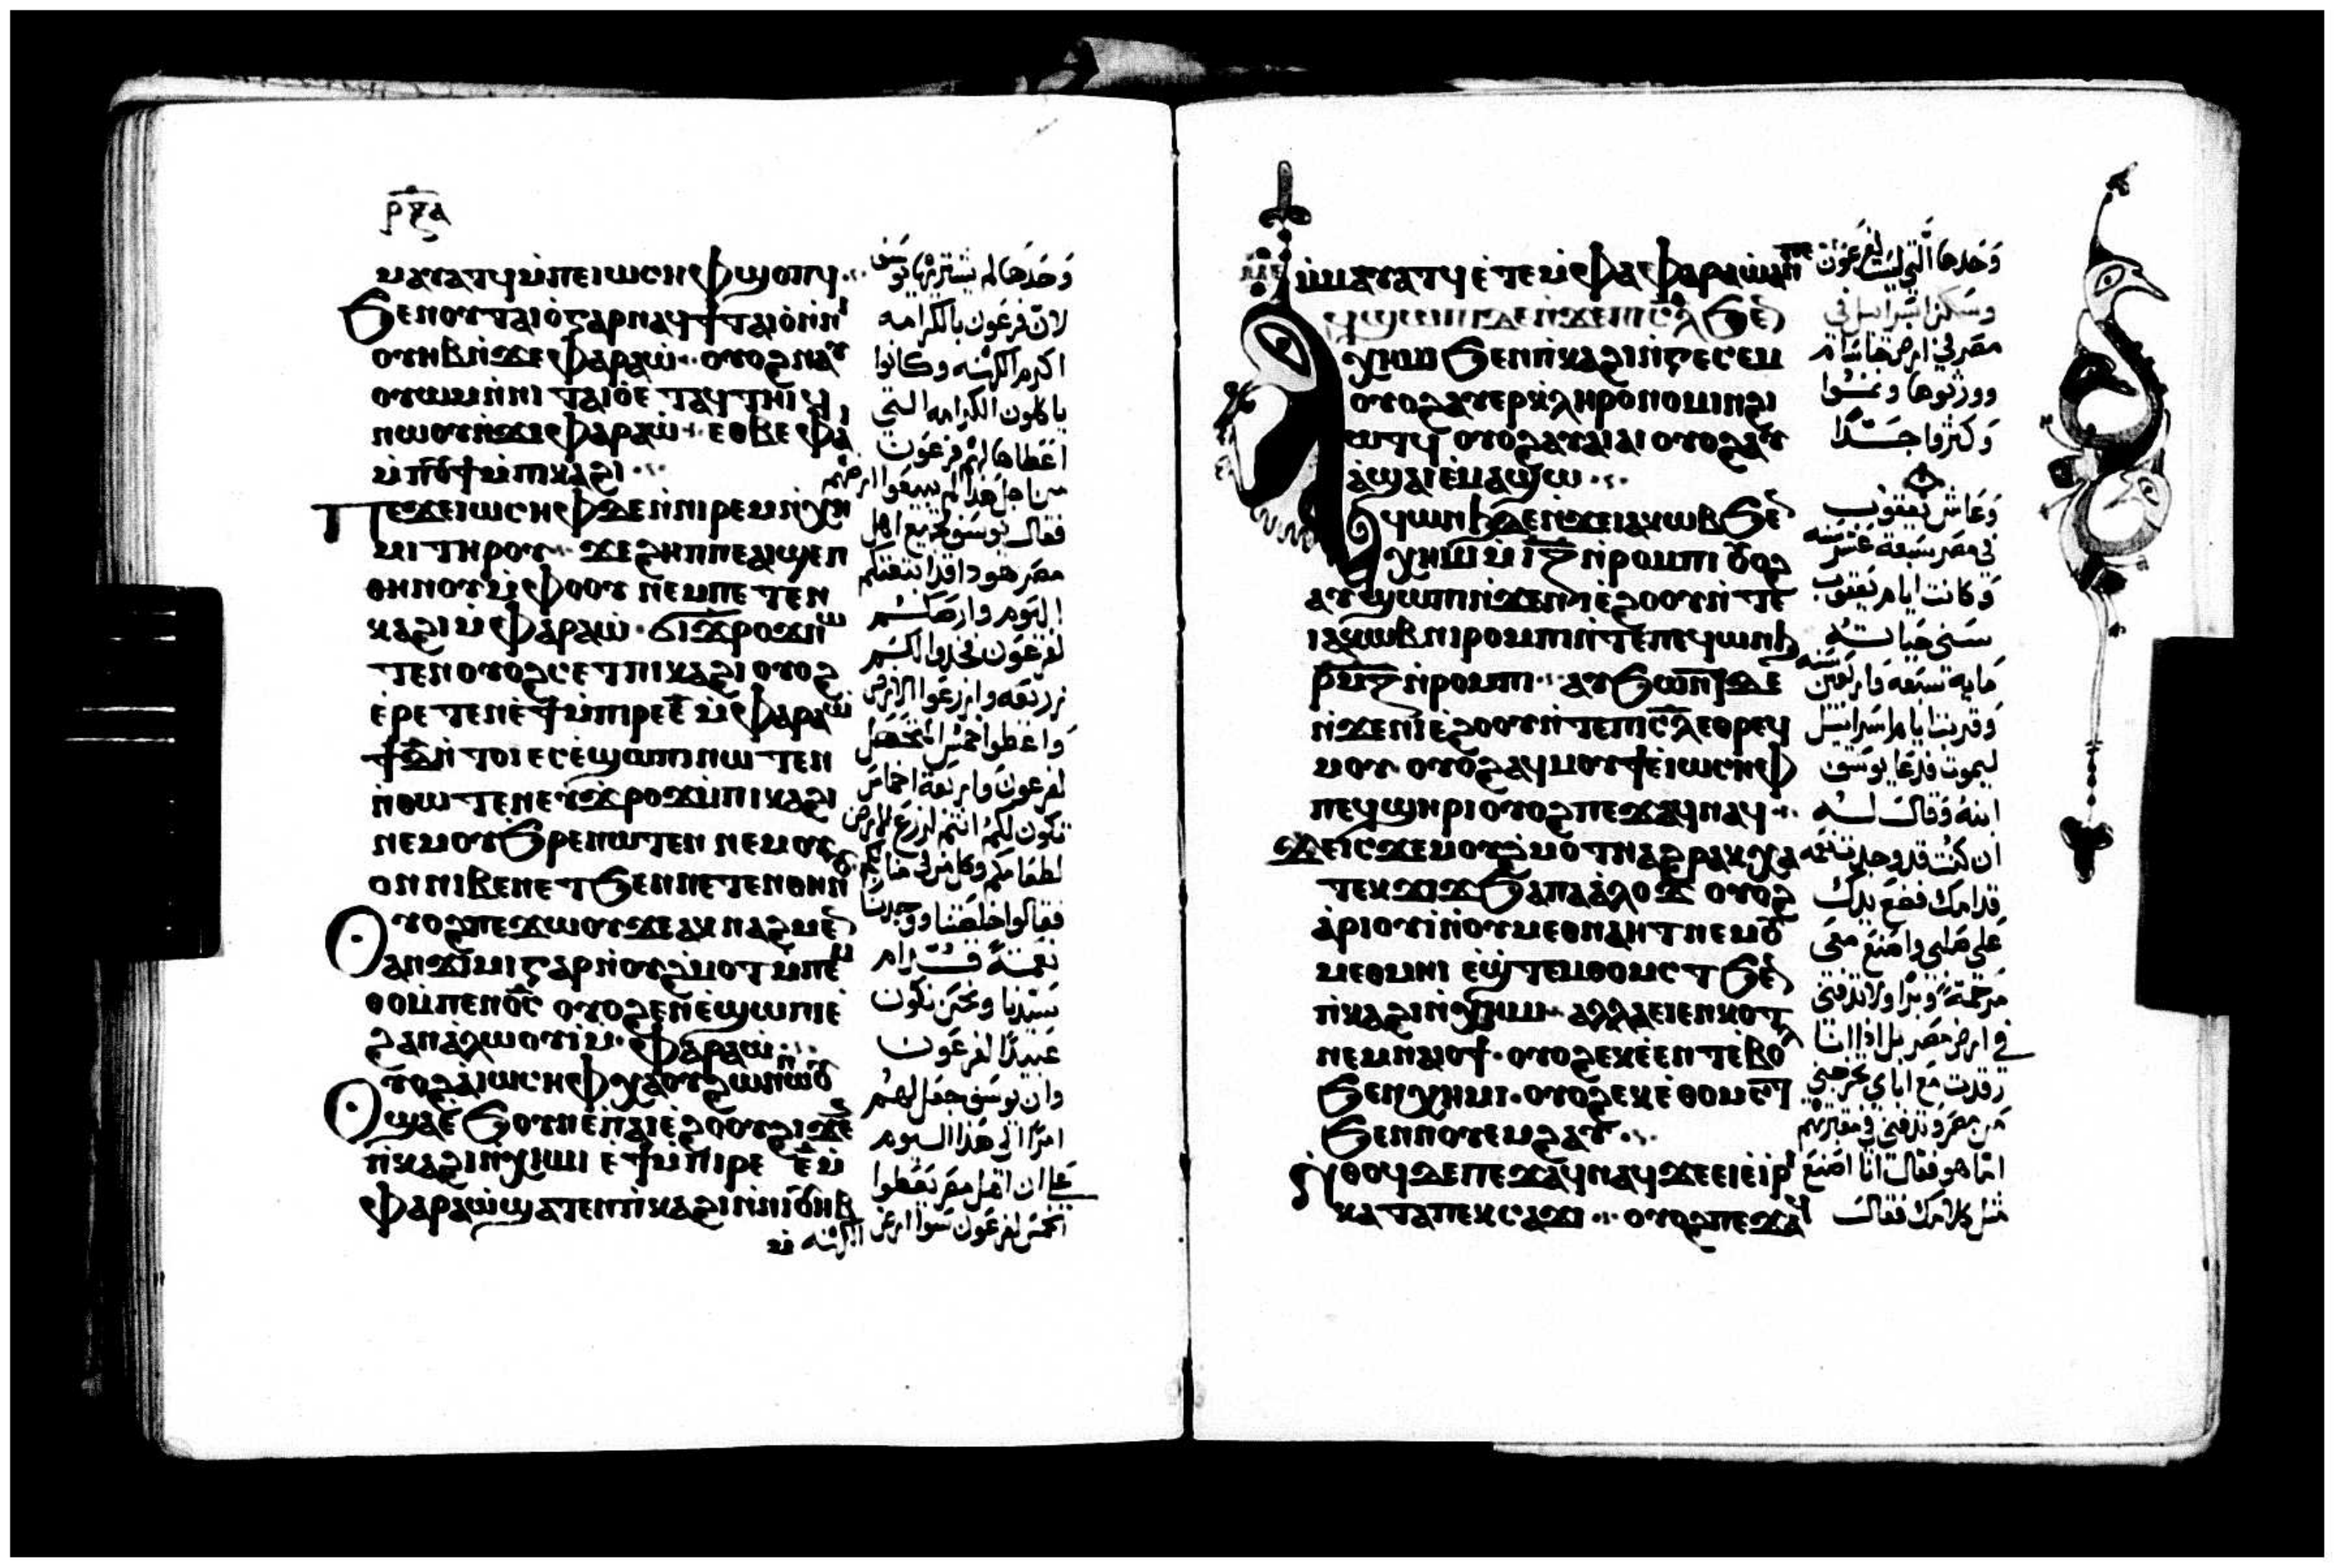 ⲣⲝⲁ
ⲙⲁⲩⲁⲧϥ ⲙ̀ⲡⲉⲓⲱⲥⲏⲫ ϣⲟⲡϥ
ϧⲉⲛⲟⲩⲧⲁⲓⲟ̀ⲅⲁⲣ ⲛⲁϥϯⲧⲁⲓⲟ̀ ⲛ̀ⲛⲓ
ⲟⲩⲏⲃ ⲛ̀ϫⲉ ⲫⲁⲣⲁⲱ̀ ⲟⲩⲟϩ ⲛⲁⲩ
ⲟⲩⲱⲙ ⲛ̀ⲛⲓⲧⲁⲓⲟ̀ ⲉⲧⲁϥⲧⲏⲓϥ
ⲛⲱⲟⲩ ⲛ̀ϫⲉ ⲫⲁⲣⲁⲱ̀ ⲉⲑⲃⲉ ⲫⲁⲓ
ⲙ̀ⲡⲟⲩϯ ⲙ̀ⲡⲓⲕⲁϩⲓ
ⲡⲉϫⲉ ⲓⲱⲥⲏⲫ ⲇⲉ ⲛ̀ⲛⲓⲣⲉⲙⲛ̀ⲭⲏ
ⲙⲓ ⲧⲏⲣⲟⲩ ϫⲉ ϩⲏⲡⲡⲉ ⲁⲓϣⲉⲡ
ⲑⲏⲛⲟⲩ ⲙ̀ⲫⲟⲟⲩ ⲛⲉⲙ ⲡⲉⲧⲉⲛ
ⲕⲁϩⲓ ⲙ̀ⲫⲁⲣⲁⲱ̀ ϭⲓ ϫⲣⲟϫ ⲛⲱ
ⲧⲉⲛ ⲟⲩⲟϩ ⲥⲉⲧ ⲡⲓⲕⲁϩⲓ ⲟⲩⲟϩ
ⲉ̀ⲣⲉⲧⲉⲛⲉ̀ϯ ⲙ̀ⲡⲓⲣⲉⲉ̅ ⲙ̀ⲫⲁⲣⲁⲱ̀
ϯⲇ̅ ⲛ̀ⲧⲟⲓ ⲉⲥⲉ̀ϣⲱⲡⲓ ⲛⲱⲧⲉⲛ
ⲛ̀ⲑⲱⲧⲉⲛ ⲉⲩϫⲣⲟϫ ⲙ̀ⲡⲓⲕⲁϩⲓ
ⲛⲉⲙ ⲟⲩϧⲣⲉ ⲛⲱⲧⲉⲛ ⲛⲉⲙ ⲟⲩ
ⲟⲛ ⲛⲓⲃⲉⲛ ⲉⲧϧⲉⲛ ⲛⲉⲧⲉⲛⲏⲓ
ⲟⲩⲟϩ ⲡⲉϫⲱⲟⲩ ϫⲉ ⲁⲕⲛⲁϩⲙⲉⲛ
ⲁⲛϫⲓⲙⲓ ⲅⲁⲣ ⲛ̀ⲟⲩϩ̀ⲙⲟⲧ ⲙ̀ⲡⲉⲙ
ⲑⲟ ⲙ̀ⲡⲉⲛⲟ̅ⲥ̅ ⲟⲩⲟϩ ⲉⲛⲉ̀ϣⲱⲡⲓ ⲉ̀
ϩⲁⲛⲁ̀ⲗⲱⲟⲩⲓ̀ ⲙ̀ⲫⲁⲣⲁⲱ̀
ⲟⲩⲟϩ ⲁ̀ ⲓⲱⲥⲏⲫ ⲭⲁ ⲟⲩϩⲱⲛ ⲛⲱⲟⲩ
ϣⲁⲉ̀ϧⲟⲩⲛ ⲉ̀ⲡⲁⲓⲉ̀ϩⲟⲟⲩ ϩⲓϫⲉⲛ
ⲡⲕⲁϩⲓ ⲛ̀ⲭⲏⲙⲓ ⲉ̀ϯ ⲙ̀ⲡⲓⲣⲉ ⲉ̅ ⲙ̀
ⲫⲁⲣⲁⲱ̀ ϣⲁⲧⲉⲛ ⲡⲕⲁϩⲓ ⲛ̀ⲛⲓⲟⲩⲏⲃ
ⲙ̀
وَحدَها لم يشتريها يوسَف
لان فرعَون بالكرامه
اكرم الكهنه وكانوا
ياكلون الكرامه التي
اعَطاها لهم فرعَون
من اجل هذا لم يبيعَوا ارضهم
فقال يوسَف لجميع اهل
مصَر هَوذا قد ابتعَتكم
اليَوم وارضكم
لفرعَون فخذوا لكم
زريعَه وازرعَوا الارض
واعَطوا خمسَ الغله
لفرعَون واربَعَة اخماسَ
تكون لكم انتم لزرع الارض
لطعَامكم وكل من في منازلكم
فقالوا خلصَتنا ووجدنا
نعَمَة قدّام
سَيدنا ونحن نكون
عَبيدًا لفرعَون
وان يوسَف جعَل لهم
امرًا الى هَذا اليوم
عَلى ان اهَل مصَر يعَطوا
الخمسَ لفرعَون سَوا ارض
الكهنه
ⲙ̀ⲙⲁⲩⲁⲧϥ ⲉ̀ⲧⲉ ⲙ̀ⲫⲁ ⲫⲁⲣⲁⲱ̀ ⲁⲛ ⲡⲉ
ⲁϥϣⲱⲡⲓ ⲇⲉ ⲛ̀ϫⲉ ⲡⲓⲥ̅ⲗ̅ ϧⲉⲛ
ⲭⲏⲙⲓ ϧⲉⲛ ⲡⲕⲁϩⲓ ⲛ̀ⲅⲉⲥⲉⲙ
ⲟⲩⲟϩ ⲁⲩⲉⲣⲕ̀ⲗⲏⲣⲟⲛⲟⲙⲓⲛ ϩⲓ
ⲱⲧϥ ⲟⲩⲟϩ ⲁⲩⲁⲓⲁⲓ ⲟⲩⲟϩ ⲁⲩ
ⲁ̀ϣⲁⲓ ⲉ̀ⲙⲁϣⲱ
ⲁϥⲱⲛϧ ⲇⲉ ⲛ̀ϫⲉ ⲓⲁⲕⲱⲃ ϧⲉⲛ
ⲭⲏⲙⲓ ⲛ̀ⲓⲍ̅ ⲛ̀ⲣⲟⲙⲡⲓ ⲟⲩⲟϩ
ⲁⲩϣⲱⲡⲓ ⲛ̀ϫⲉ ⲛⲓⲉ̀ϩⲟⲟⲩ ⲛ̀ⲧⲉ
ⲓⲁⲕⲱⲃ ⲛⲓⲣⲟⲙⲡⲓ ⲛ̀ⲧⲉ ⲡⲉϥⲱⲛϧ
ⲣ̅ⲙ̅ⲍ̅ ⲛ̀ⲣⲟⲙⲡⲓ ⲁⲩϧⲱⲛⲧ ⲇⲉ
ⲛ̀ϫⲉ ⲛⲓⲉ̀ϩⲟⲟⲩ ⲛ̀ⲧⲉ ⲡⲓⲥ̅ⲗ̅ ⲉⲑⲣⲉϥ
ⲙⲟⲩ ⲟⲩⲟϩ ⲁϥⲙⲟⲩϯ ⲉ̀ⲓⲱⲥⲏⲫ
ⲡⲉϥϣⲏⲣⲓ ⲟⲩⲟϩ ⲡⲉϫⲁϥ ⲛⲁϥ
ϫⲉ ⲓⲥϫⲉ ⲙⲟⲩϩ̀ⲙⲟⲧ ⲛⲁϩⲣⲁⲕ ⲭⲁ
ⲧⲉⲕϫⲓϫ ϧⲁ ⲡⲁⲁ̀ⲗⲟϫ ⲟⲩⲟϩ
ⲁ̀ⲣⲓⲟⲩⲓ̀ ⲛ̀ⲟⲩⲙⲉⲑⲛⲁⲏⲧ ⲛⲉⲙ ⲟⲩ
ⲙⲉⲑⲙⲏⲓ ⲉ̀ϣⲧⲉⲙⲑⲟⲙⲥⲧ ϧⲉⲛ
ⲡⲕⲁϩⲓ ⲛ̀ⲭⲏⲙⲓ ⲁⲗⲗⲁ ⲉⲓⲉ̀ⲛⲕⲟⲧ
ⲛⲉⲙ ⲛⲁⲓⲟϯ ⲟⲩⲟϩ ⲉⲕⲉ̀ⲉⲛⲧ ⲉⲃⲟⲗ
ϧⲉⲛ ⲭⲏⲙⲓ ⲟⲩⲟϩ ⲉⲕⲉ̀ⲑⲟⲙⲥⲧ
ϧⲉⲛ ⲡⲟⲩⲉ̀ⲙϩⲁⲩ
ⲛ̀ⲑⲟϥ ⲇⲉ ⲡⲉϫⲁϥ ⲛⲁϥ ϫⲉ ⲉⲓⲉ̀ⲓⲣⲓ
ⲕⲁⲧⲁ ⲡⲉⲕⲥⲁϫⲓ ⲟⲩⲟϩ ⲡⲉϫⲁϥ
وَحدَها التي ليست لفرعَون
وسَكن اسَراييل في
مصَر في ارض جاسَام
وورثوها ونمَوا
وَكثرُوا جَدًا
وَعَاش يَعَقوب
في مصَر سَبعَة عَشر سَنه
وَكانت ايام يَعَقوب
سَنى حيَاته
مايه سَبعَه واربَعَين سَنه
وَقربت ايام اسَراييل
ليموت فدعَا يوسَف
ابنهُ وَقال لـه
ان كنتُ قد وجدتُ نعَمَه
قدامك فضَع يدك
عَلى صَلبى واصَنع معَى
رَحمَةً وَبرًا ولا تدفنّى
في ارض مصَر بل اذا انا
رَقدت مَع اباى تخرجنى
مَن مصَر وَتدفنى في مقبرتهم
امّا هو فقال انا اصَنَع
مثل كلامك فقال